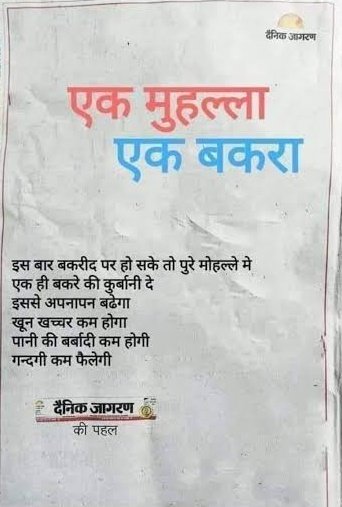 दैनिक जागरण
एक मुहल्ला
एक बकरा
इस बार बकरीद पर हो सके तो पुरे मोहल्ले मे
एक ही बकरे की कुर्बानी दे
इससे अपनापन बढेगा
खून खच्चर कम होगा
पानी की बर्बादी कम होगी
गन्दगी कम फैलेगी
दैनिक जागरण
की पहल